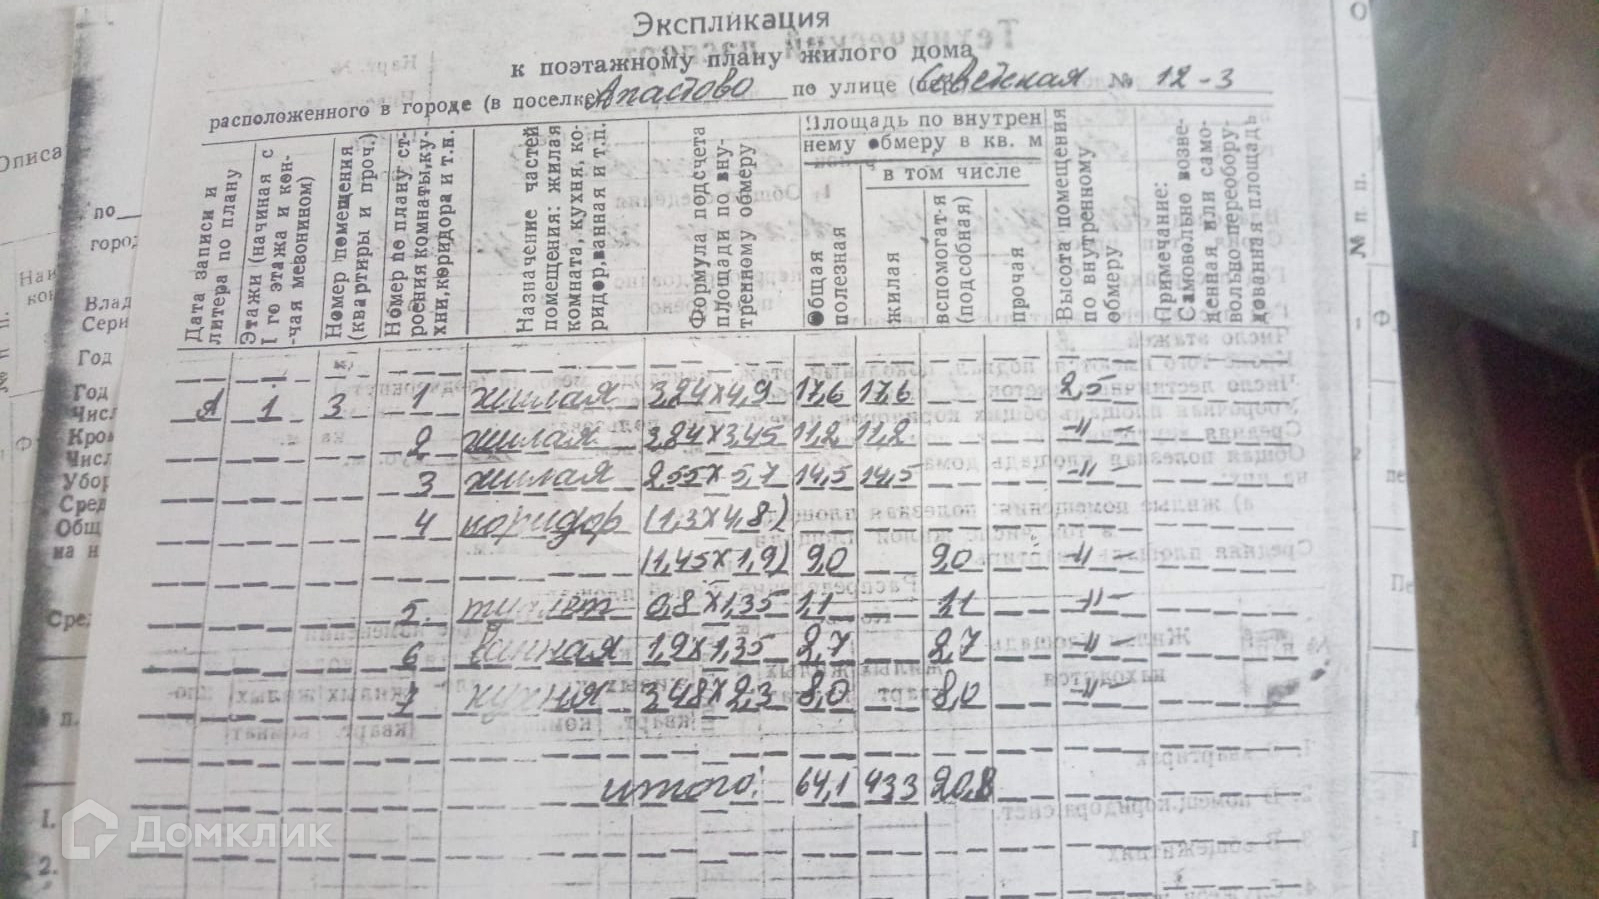 Экспликация
к поэтажному плану жилого дома
расположенного в городе (в поселке) Апастово по улице (пер.) Советская № 12-3
Дата записи и литера по плану
Этажи (начиная с I го этажа и кончая мевонином)
Номер помещения (квартиры и проч.)
Номер по плану строения комнаты, кухни, коридора и т.н.
Назначение частей помещения: жилая комната, кухня, коридор, ванная и т.п.
Формула подсчета площади по внутренному обмеру
Площадь по внутреннему обмеру в кв. м
в том числе
Общая полезная
жилая
вспомогат-я (подсобная)
прочая
Высота помещения по внутренному обмеру
Примечание: Самовольно возведенная или самовольно переоборудованная площадь
А 1 3 1 жилая 3,24×4,9 17,6 17,6 2,5
2 жилая 3,24×3,45 11,2 11,2 -"-
3 жилая 2,55×5,7 14,5 14,5 -"-
4 коридор (1,3×4,8)
(1,45×1,9) 9,0 9,0 -"-
5. туалет 0,8×1,35 1,1 1,1 -"-
6 ванная 1,9×1,35 2,7 2,7 -"-
7 кухня 3,48×2,3 8,0 8,0 -"-
итого: 64,1 43,3 20,8
Описа
по
город
Наи
кон
Влад
Сери
Год
Год
Числ
Кров
Числ
Убор
Сред
Общ
на н
Сред
п.
1.
2.
№ п п.
Ф.
Домклик